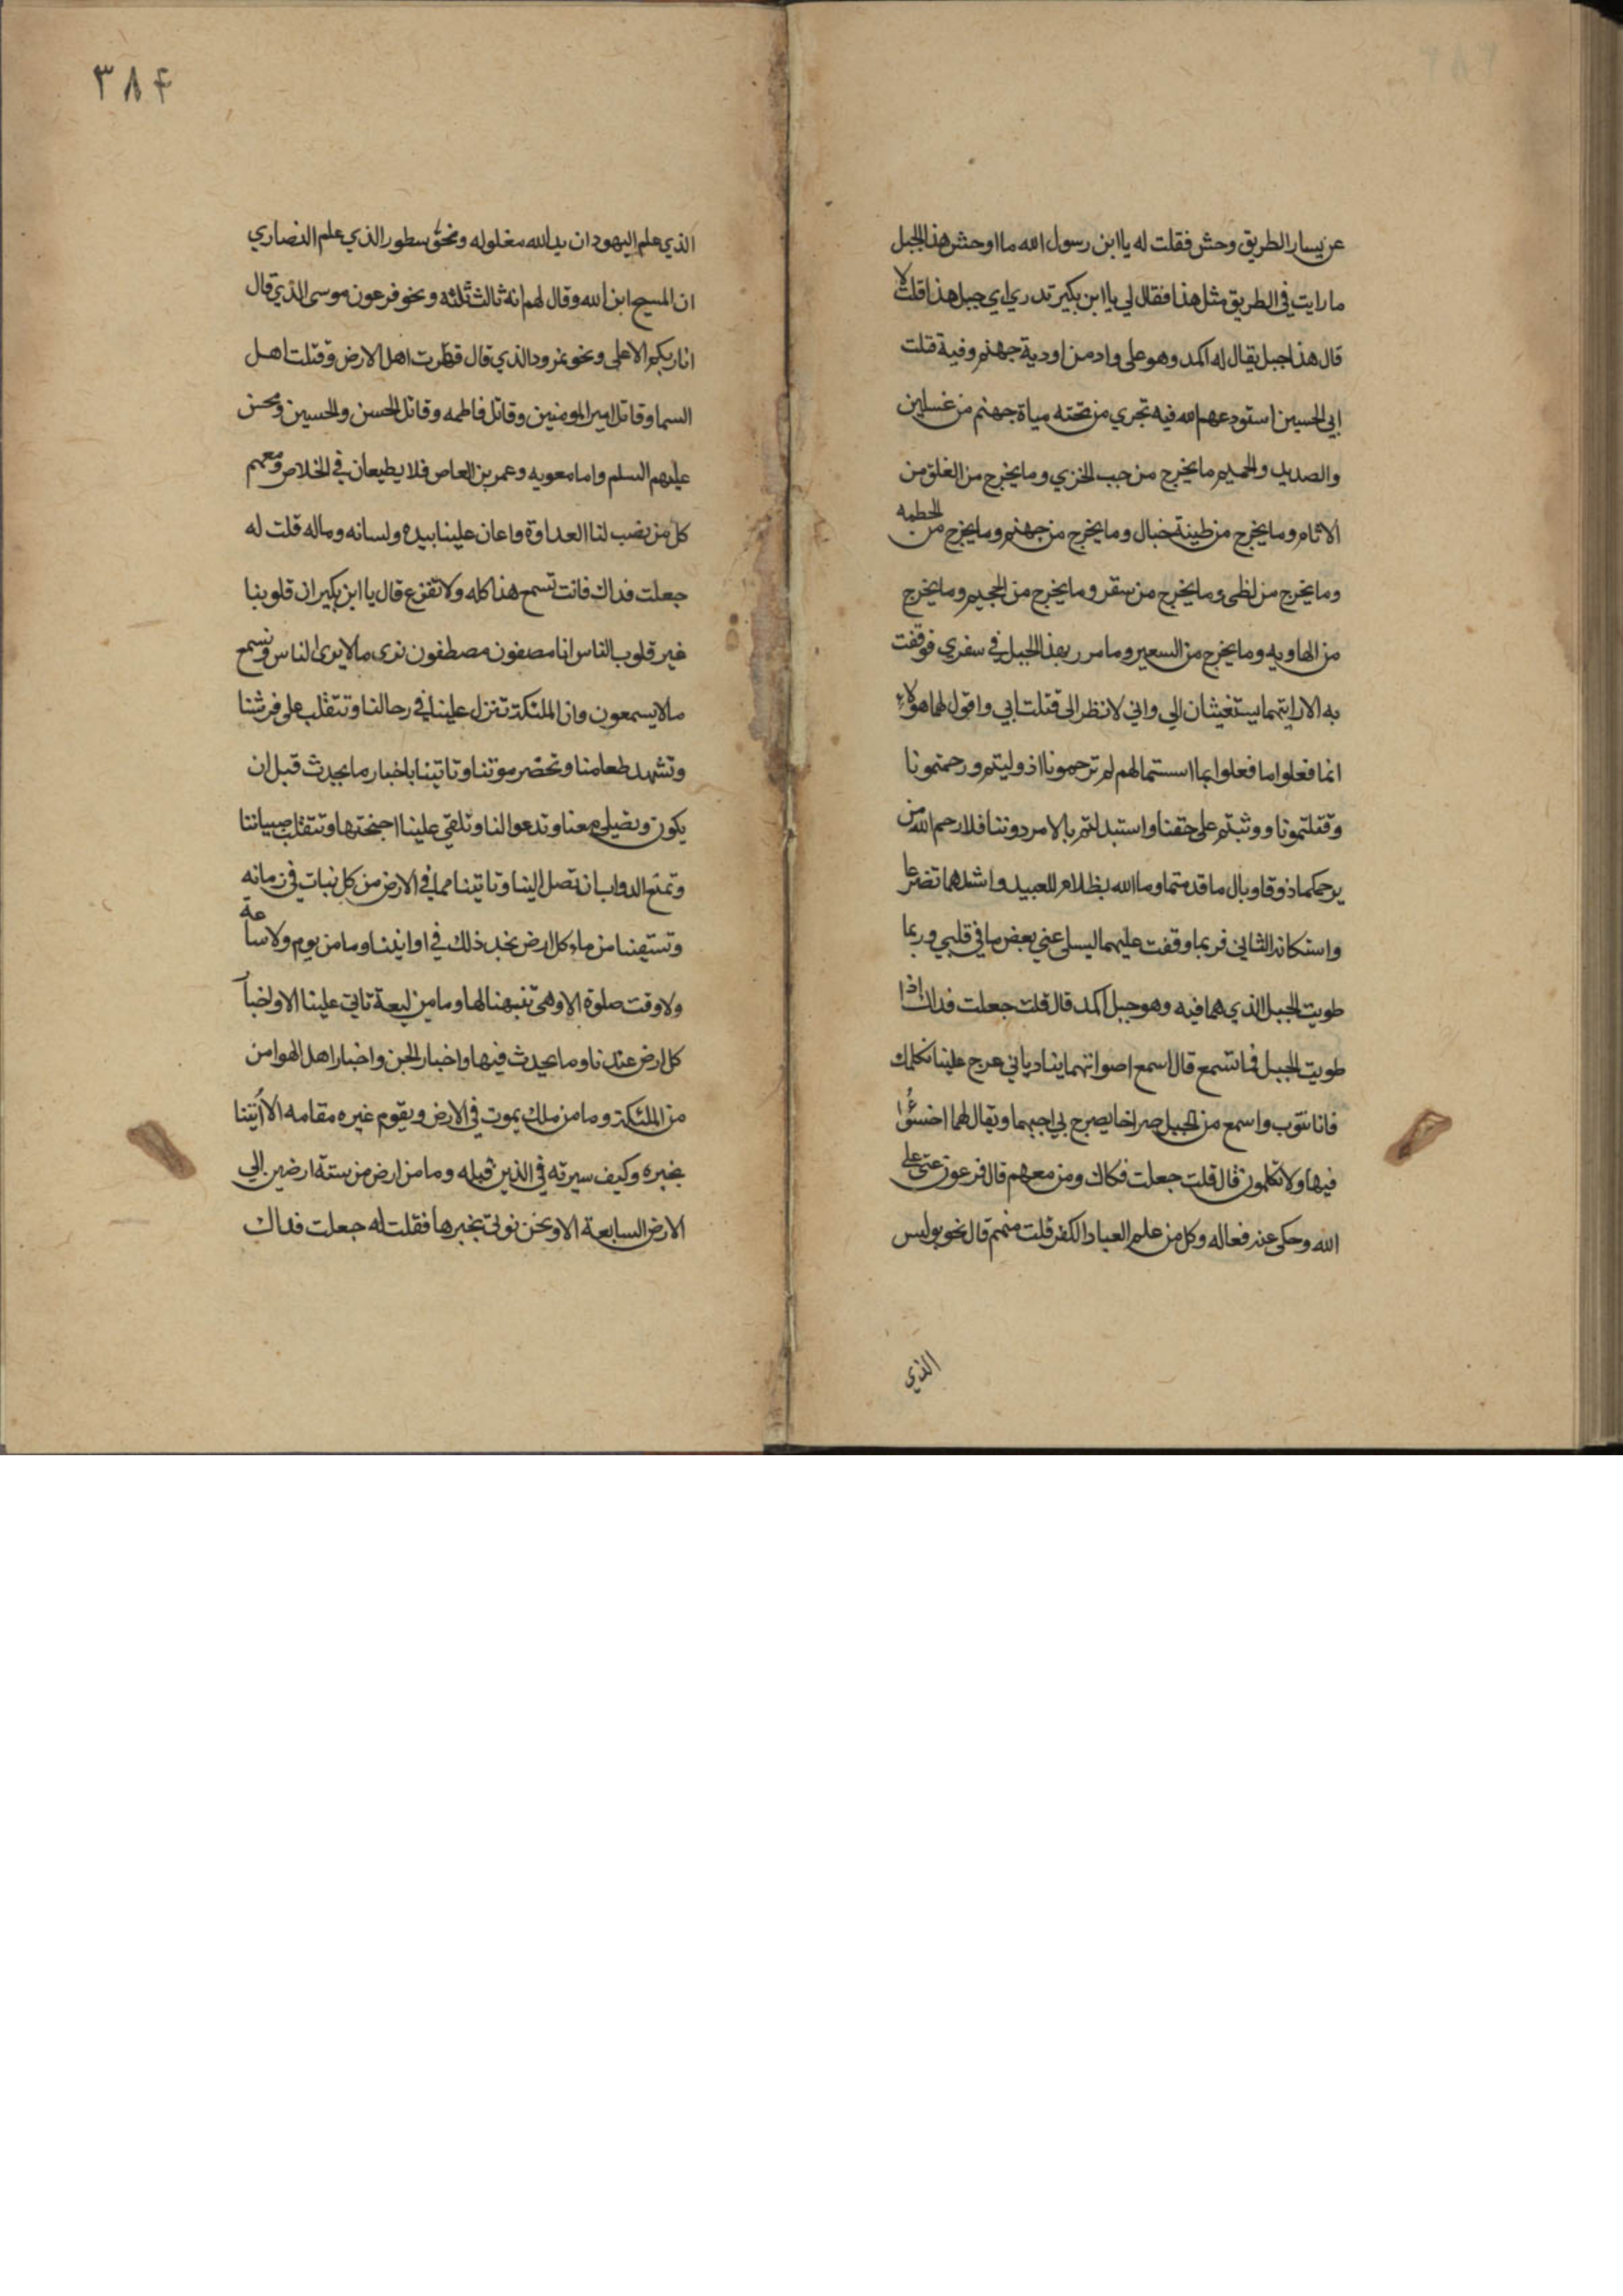 عن يسار الطريق وحش فقلت له يا ابن رسول الله ما اوحش هذا الجبل
ما رايت في الطريق مثل هذا فقال لي يا ابن بكير تدري اي جبل هذا قلت لا
قال هذا جبل يقال له الكمد وهو على واد من اودية جهنم وفيه قتلت
ابي الحسين استودعهم الله فيه تجري من تحته مياة جهنم من غسلين
والصديد والحميم ما يخرج من جب الخزي وما يخرج من الفلق من
الاثام وما يخرج من طينة خبال وما يخرج من جهنم وما يخرج من الحطمه
وما يخرج من لظى وما يخرج من سقر وما يخرج من الجحيم وما يخرج
من الهاويه وما يخرج من السعير وما مررت بهذا الجبل في سفري فوقفت
به الا رايتهما يستغيثان الي واني لانظر الى قتلت ابي واقول لهما هولاء
انما فعلوا ما فعلوا بما اسستما لهم لم ترحمونا اذ وليتم ورحمتمونا
وقتلتمونا ووثبتم على حقنا واستبدلتم بالامر دوننا فلا رحم الله من
يرحمكما ذوقا وبال ما قدمتما وما الله بظلام للعبيد واشدهما تضرعا
واستكانه الثاني فربما وقفت عليهما ليسلى عني بعض ما في قلبي وربما
طويت الجبل الذي هما فيه وهو جبل الكمد قال قلت جعلت فداك اذا
طويت الجبل فما تسمع قال اسمع اصواتهما ينادياني عرج علينا نكلمك
فانا نتوب واسمع من الجبل صراخا يصرخ بي اجبهما ويقال لهما اخسئوا
فيها ولا تكلمون قال قلت جعلت فكاك ومن معهم قال فرعون عتى على
الله وحكى عنه فعاله وكل من علم العباد الكفر قلت منهم قال نحو بولس
الذي
٣٨۴
الذي علم اليهود ان يد الله مغلوله ونحو نسطور الذي علم النصاري
ان المسيح ابن الله وقال لهم انه ثالث ثلثه ونحو فرعون موسى الذي قال
انا ربكم الاعلى ونحو نمرود الذي قال قهرت اهل الارض وقتلت اهل
السما وقاتل امير المومنين وقاتل فاطمه وقاتل الحسن والحسين ومحسن
عليهم السلم واما معويه وعمر بن العاص فلا يطيعان في الخلاص ومعهم
كل من نصب لنا العداوة واعان علينا بيده ولسانه وماله قلت له
جعلت فداك فانت تسمع هذا كله ولا تفزع قال يا ابن بكير ان قلوبنا
غير قلوب الناس انا مصفون مصطفون نرى ما لا يرى الناس ونسمع
ما لا يسمعون وان الملئكة تنزل علينا في رحالنا وتتقلب على فرشنا
وتشهد طعامنا وتحضر موتنا وتاتينا باخبار ما يحدث قبل ان
يكون وتصلي معنا وتدعوا لنا وتلقي علينا اجنحتها وتتقلب صبياننا
وتمنع الدواب ان تصل الينا وتاتينا مما في الارض من كل نبات في زمانه
وتسقينا من ماء كل ارض نجد ذلك في اوانينا وما من يوم ولا ساعة
ولا وقت صلوة الا وهي تنبهنا لها وما من ليعة تاتي علينا الا واخبار
كل ارض عندنا وما يحدث فيها واخبار الجن واخبار اهل الهوا من
من الملئكة وما من ملك يموت في الارض ويقوم غيره مقامه الا اُتينا
بخبره وكيف سيرته في الذين قبله وما من ارض من ستة ارضين الي
الارض السابعة الا ونحن نوتى بخبرها فقلت له جعلت فداك